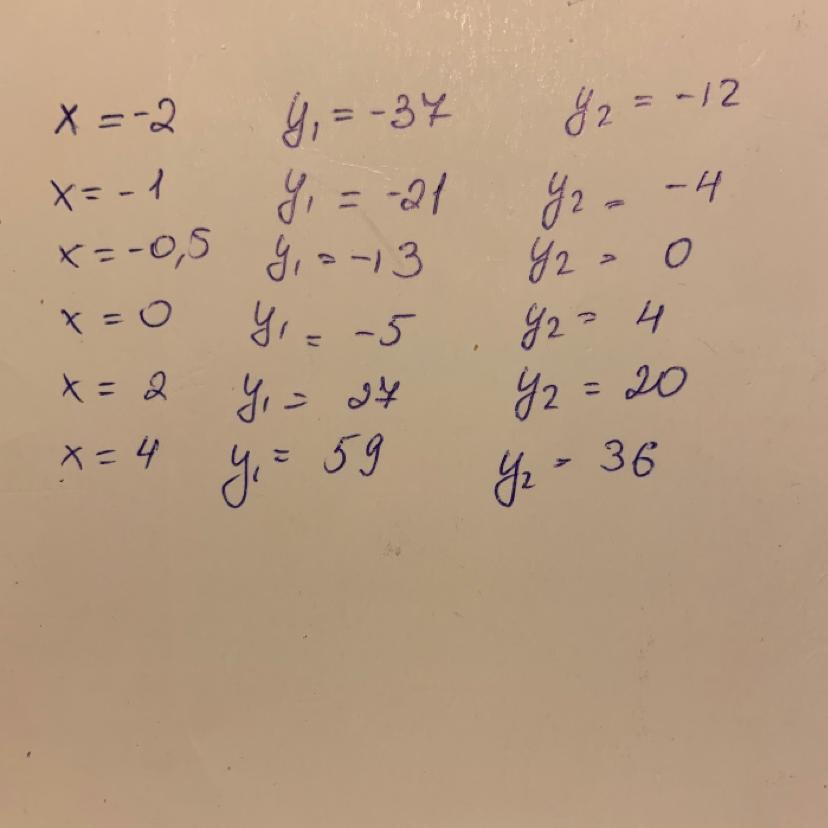 x = -2 y₁ = -37 y₂ = -12
x = -1 y₁ = -21 y₂ = -4
x = -0,5 y₁ = -13 y₂ = 0
x = 0 y₁ = -5 y₂ = 4
x = 2 y₁ = 27 y₂ = 20
x = 4 y₁ = 59 y₂ = 36